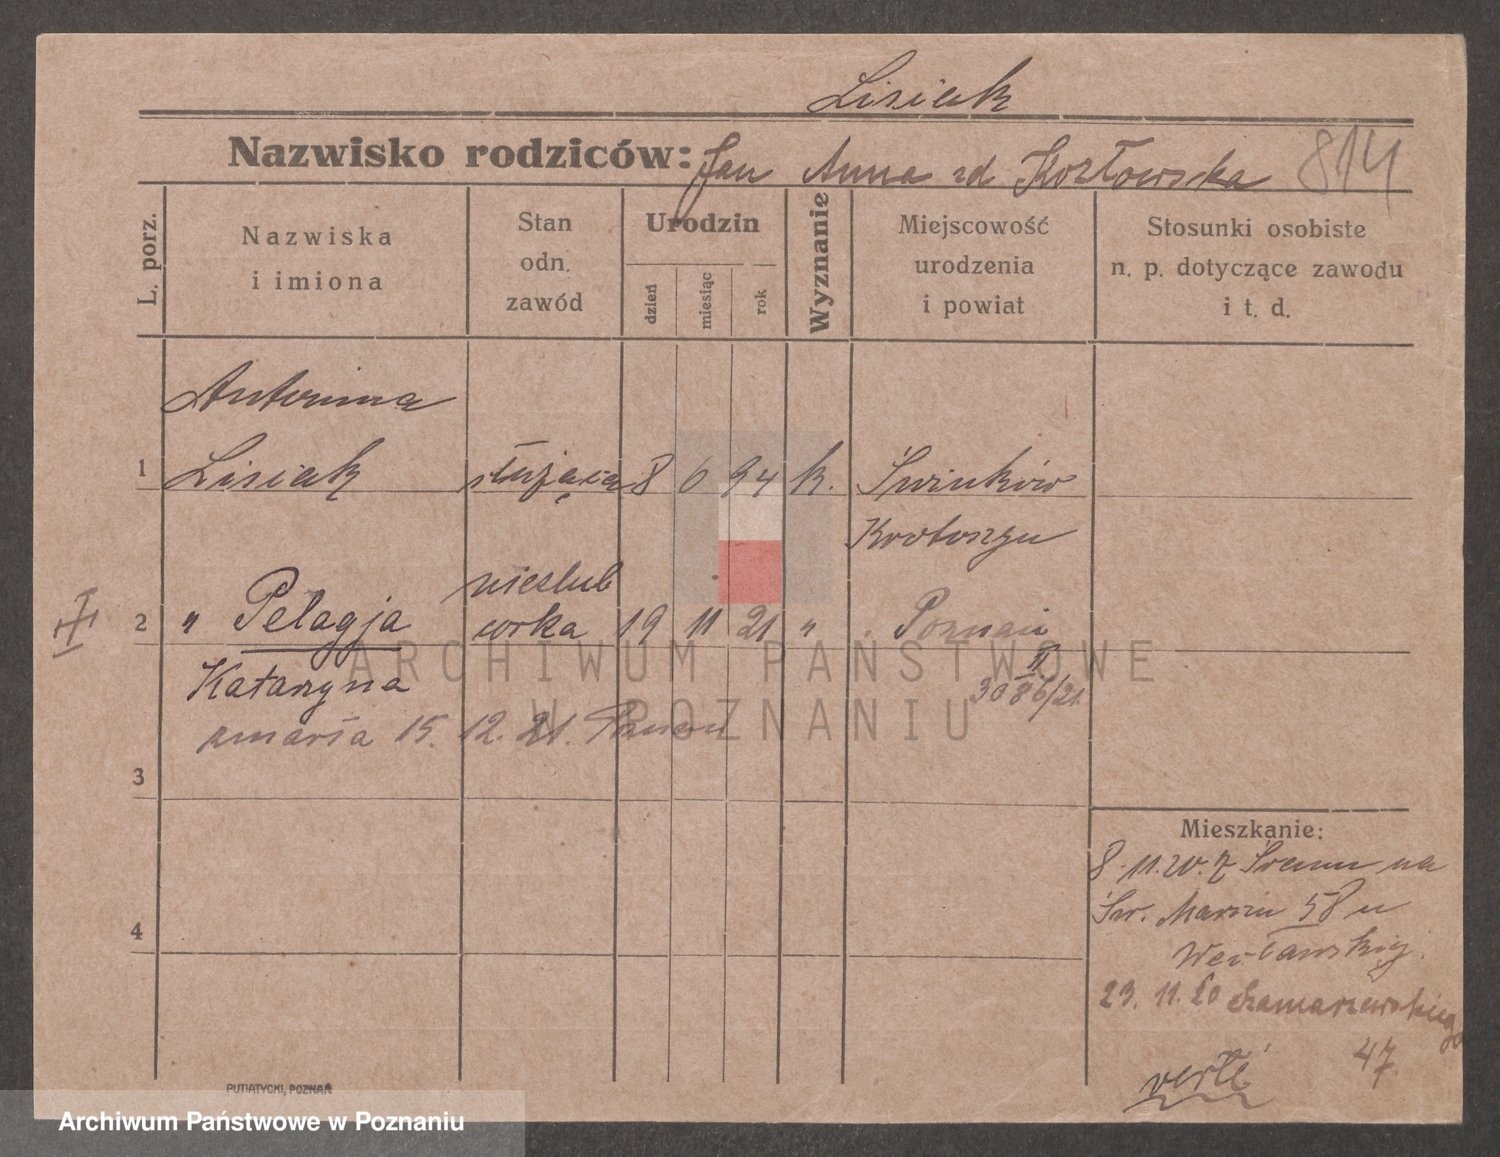 Lisiak
Nazwisko rodziców: Jan Anna zd Kozłowska 814
L. porz.
Nazwiska
i imiona
Stan
odn.
zawód
Urodzin
dzień
miesiąc
rok
Wyznanie
Miejscowość
urodzenia
i powiat
Stosunki osobiste
n. p. dotyczące zawodu
i t. d.
Antonina
1 Lisiak służąca 8 6 94 k. Świnków
Krotoszyn
nieślub
2 " Pelagja córka 19 11 21 " Poznań
Katarzyna
30 86/21
zmarła 15. 12. 21. Poznań
3
4
Mieszkanie:
8.11.20. z Śremu na
Św. Marcin 58 u
23. 11. 20 Szamarzewskiego
47
verte
PUTIATYCKI, POZNAŃ
ARCHIWUM PAŃSTWOWE
W POZNANIU
Archiwum Państwowe w Poznaniu